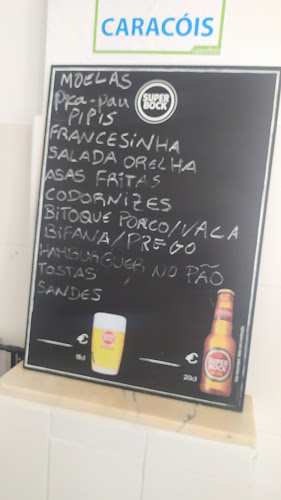 CARACÓIS
MOELAS
SUPER BOCK
Pka-pau
PIPIS
FRANCESINHA
SALADA ORELHA
ASAS FRITAS
CODORNIZES
BITOQUE PORCO/VACA
BIFANA/PREGO
HAMBURGUER NO PÃO
TOSTAS
SANDES
€ €
15cl 20cl
SUPER BOCK